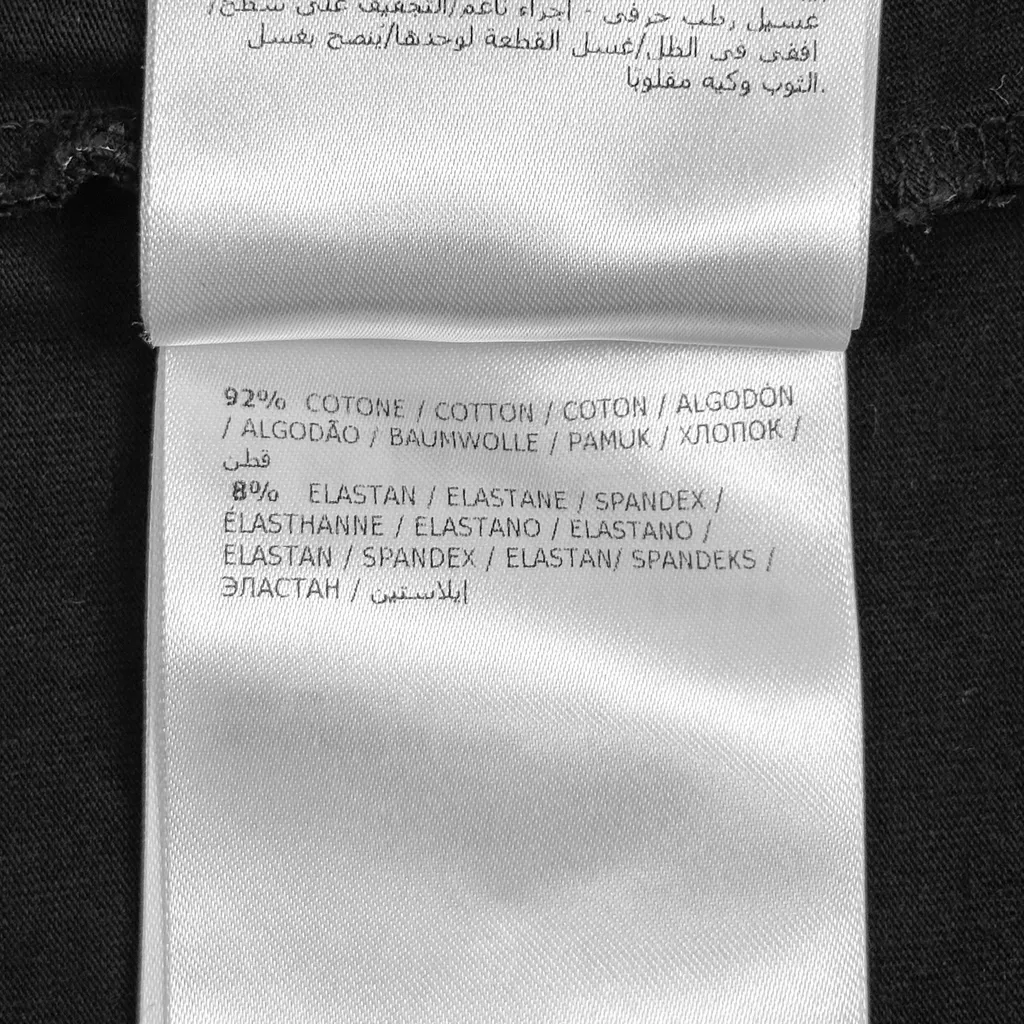 غسيل رطب حرفى - اجراء ناعم/التجفيف على سطح/
افقى فى الظل/غسل القطعة لوحدها/ينصح بغسل
الثوب وكيه مقلوبا.
92% COTONE / COTTON / COTON / ALGODÓN
/ ALGODÃO / BAUMWOLLE / PAMUK / ХЛОПОК /
قطن
8% ELASTAN / ELASTANE / SPANDEX /
ÉLASTHANNE / ELASTANO / ELASTANO /
ELASTAN / SPANDEX / ELASTAN/ SPANDEKS /
ЭЛАСТАН / إيلاستين